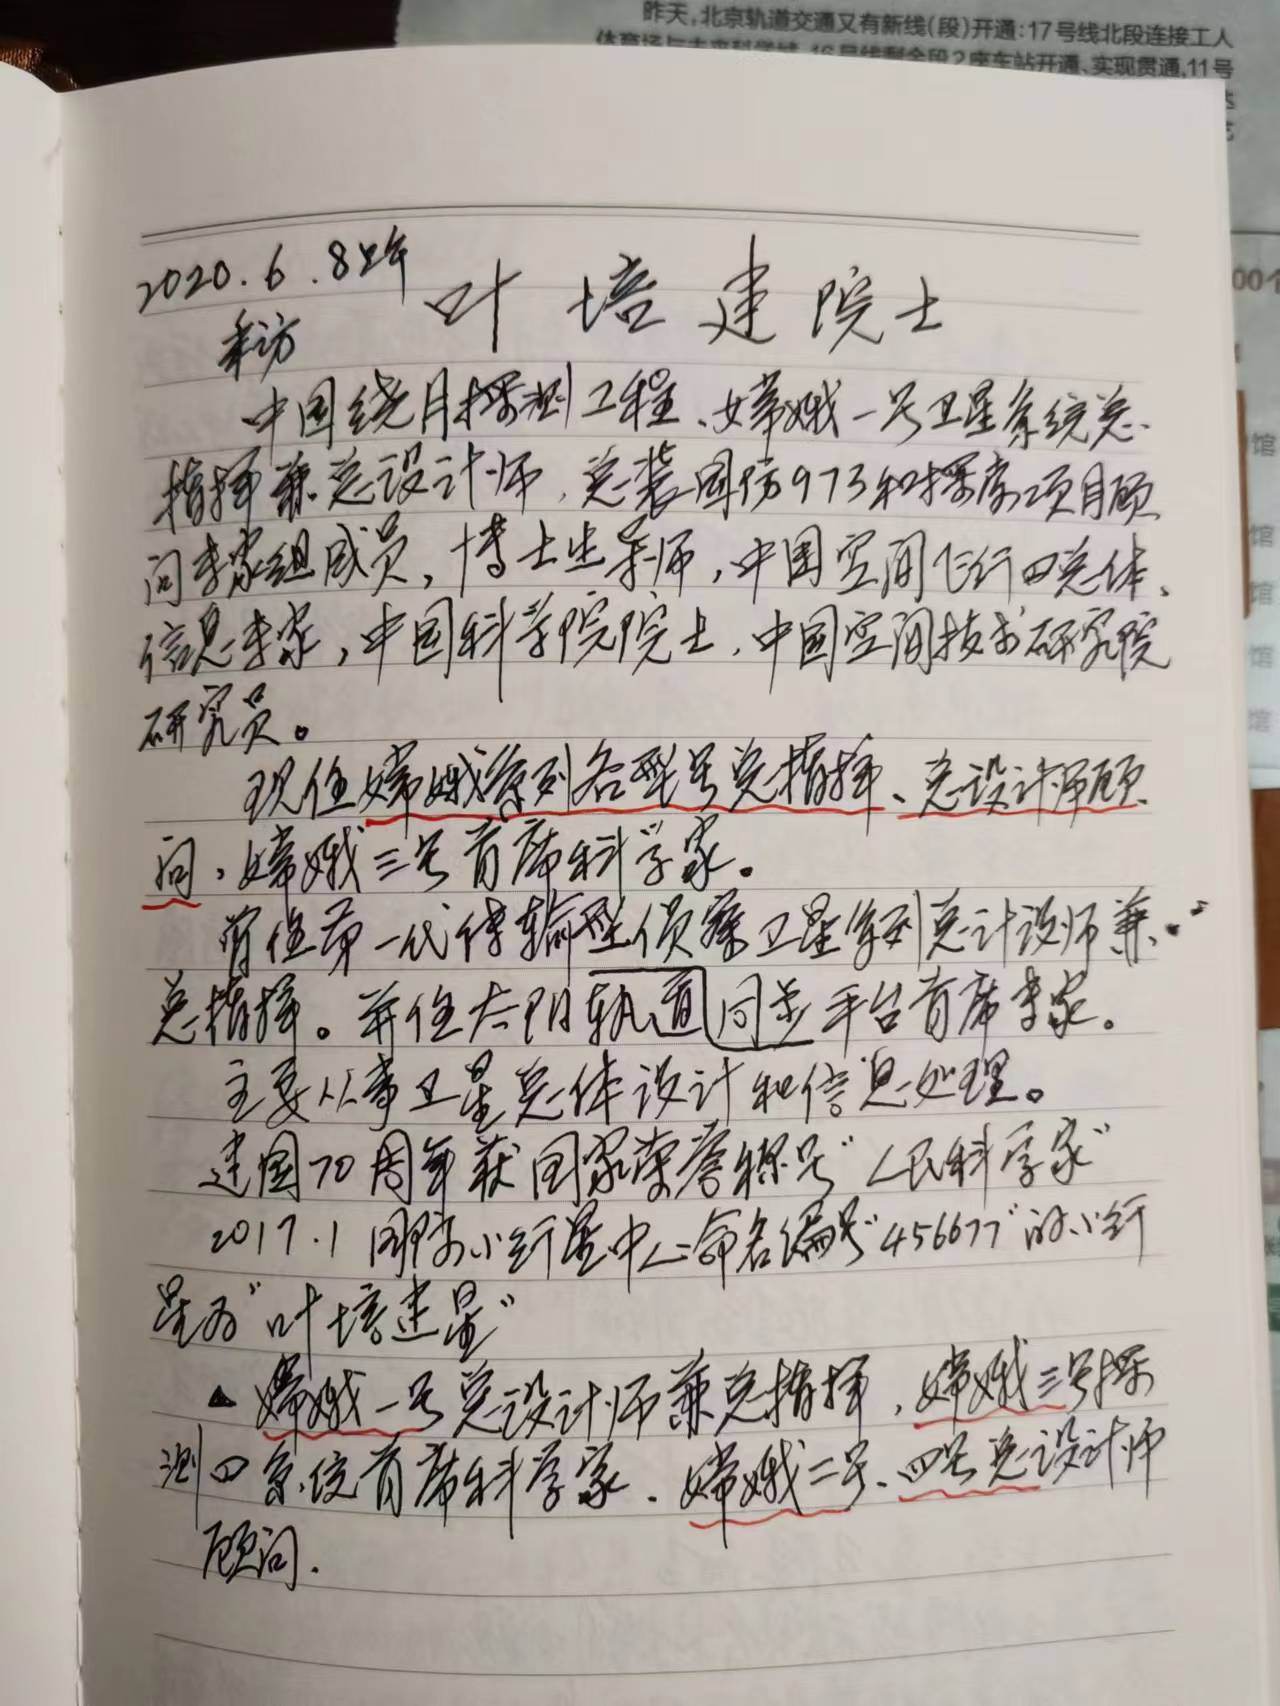 昨天,北京轨道交通又有新线(段)开通:17号线北段连接工人
体育场与未来科学城,16号线剩余段2座车站开通、实现贯通,11号
00个
馆
馆
馆
馆
馆
2020.6.8上午
采访
叶培建院士
中国绕月探测工程、嫦娥一号卫星系统总
指挥兼总设计师,总装国防973和探索项目顾
问专家组成员,博士生导师,中国空间飞行四总体、
信息专家,中国科学院院士,中国空间技术研究院
研究员。
现任嫦娥系列各型号总指挥、总设计师顾
问,嫦娥三号首席科学家。
曾任第一代传输型侦察卫星系列总计设师兼
总指挥。并任太阳轨道同步平台首席专家。
主要从事卫星总体设计和信息处理。
建国70周年获国家荣誉称号“人民科学家”
2017.1国际小行星中心命名编号“456677”的小行
星为“叶培建星”
▲嫦娥一号总设计师兼总指挥,嫦娥三号探
测四系统首席科学家、嫦娥二号、四号总设计师
顾问.